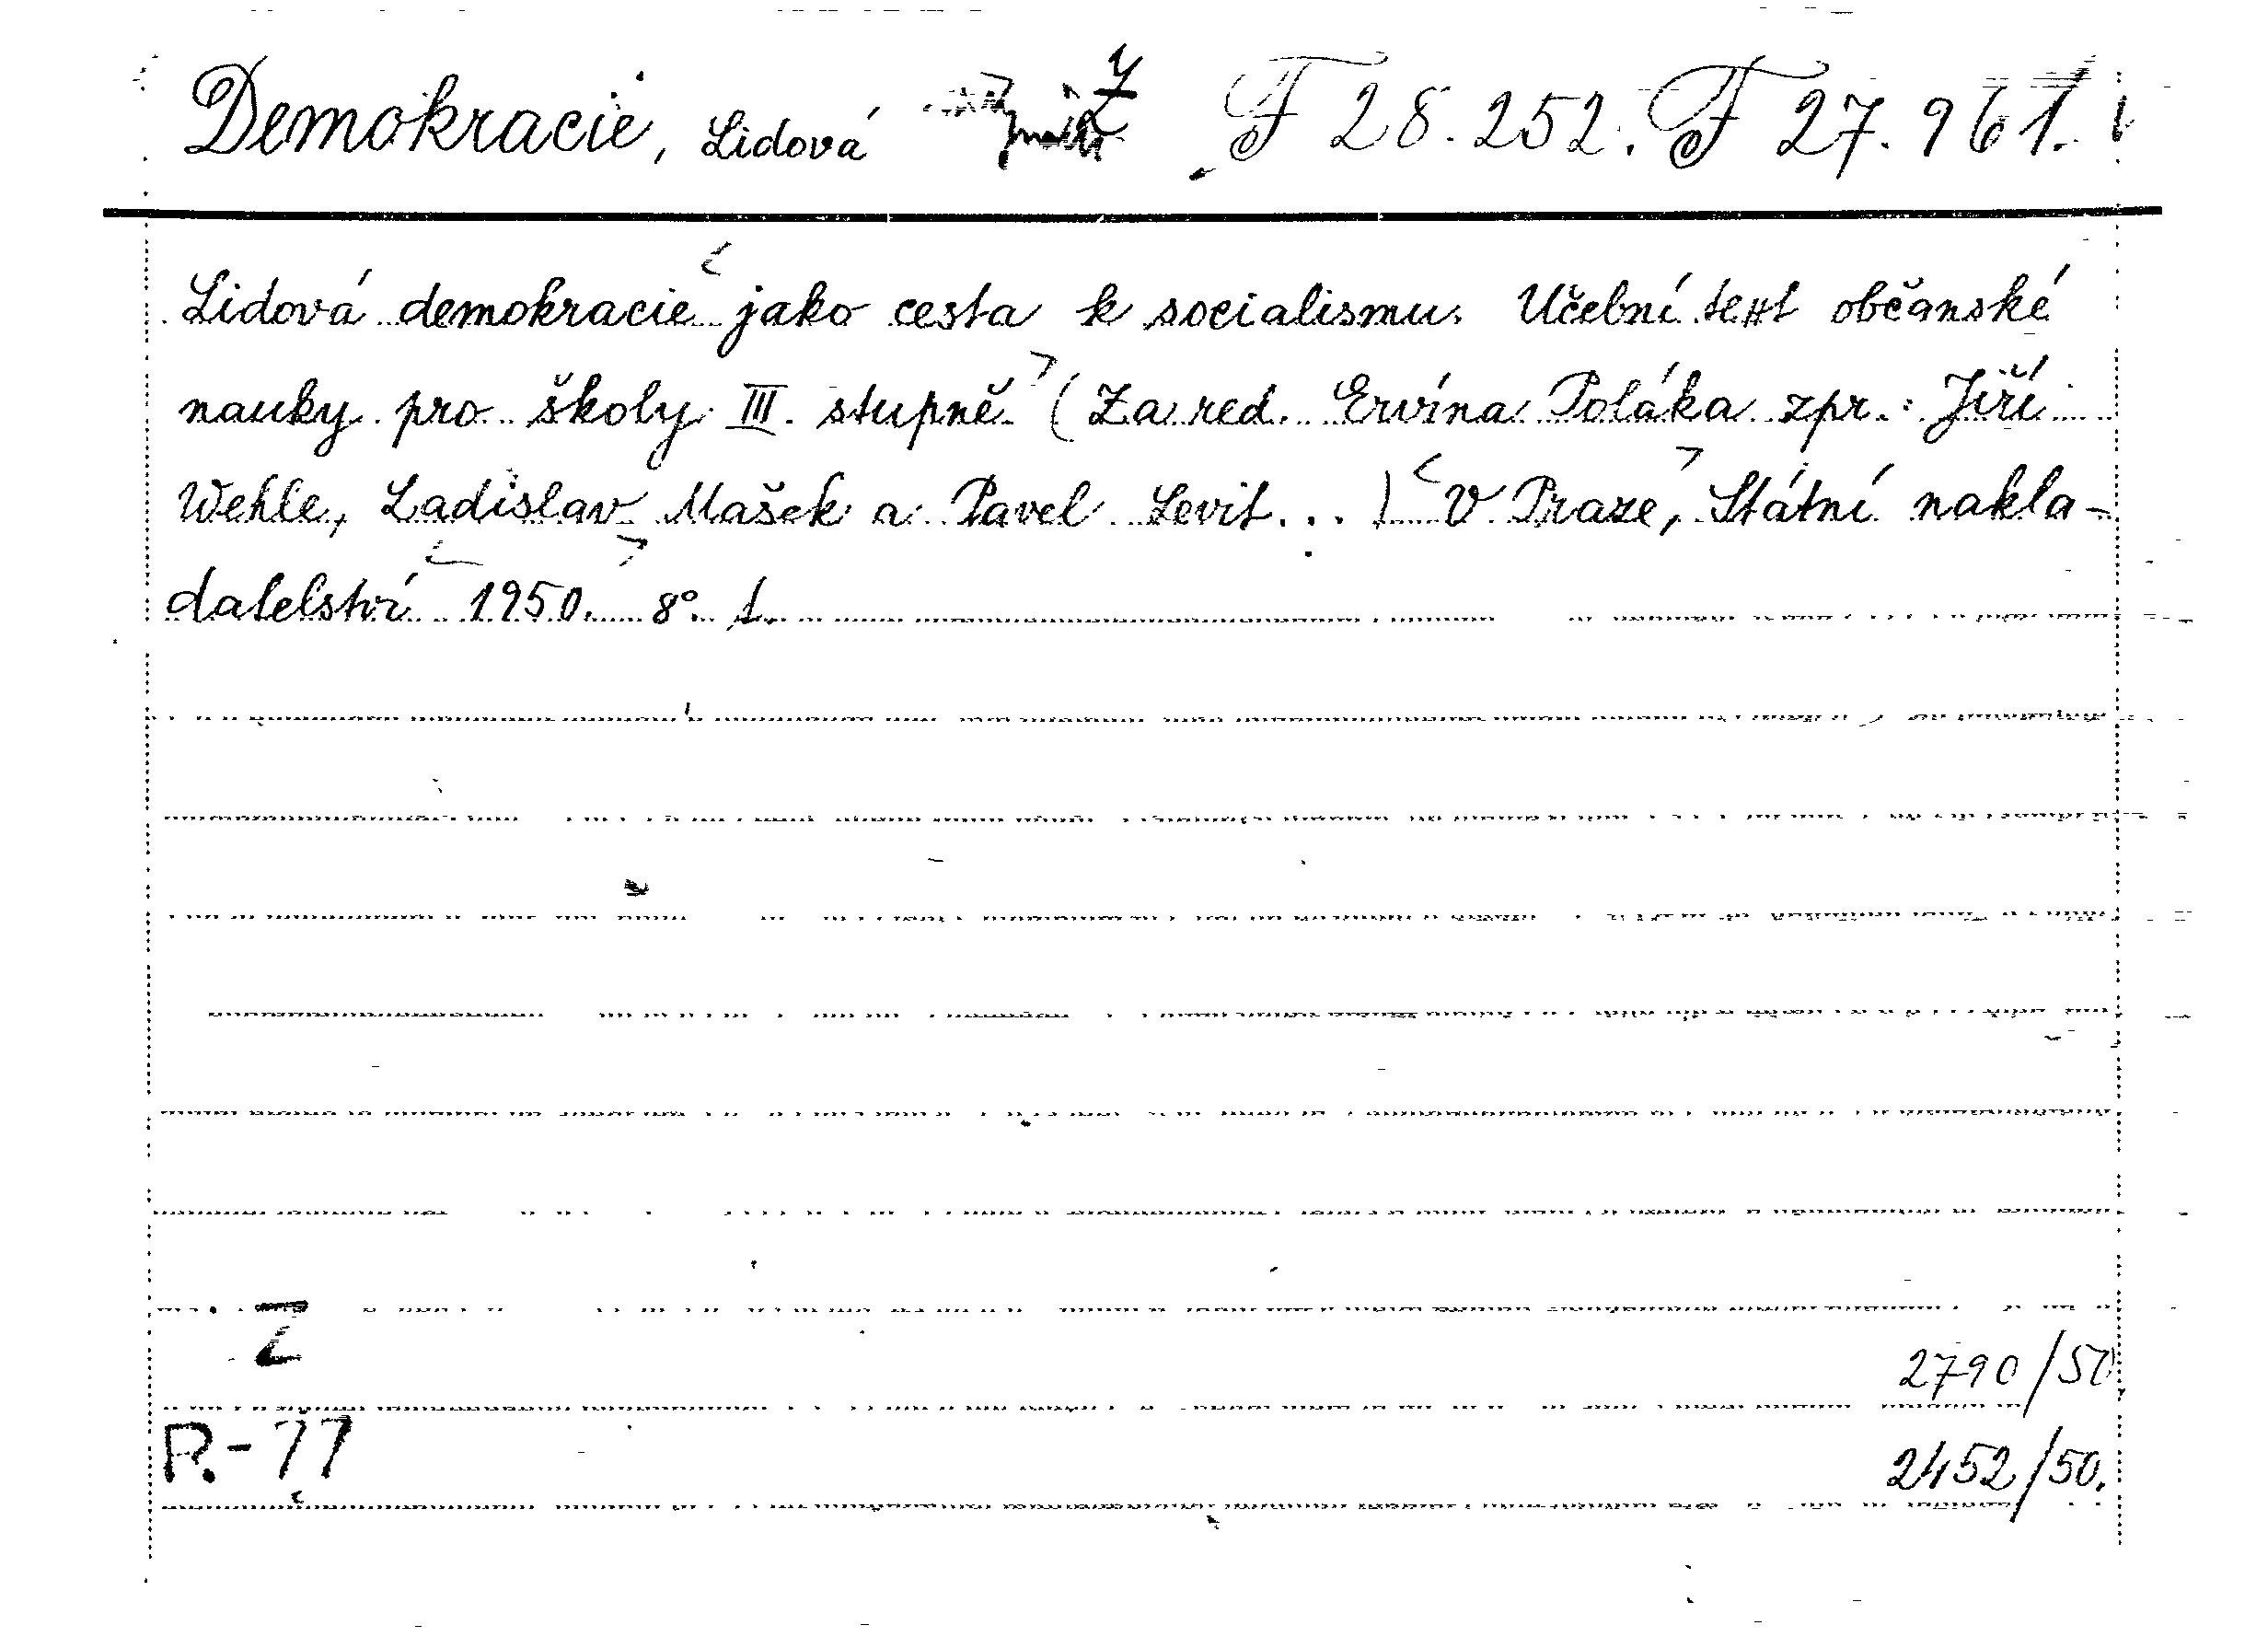 Demokracie, Lidová Ž F 28.252. F 27.961.
Lidová demokracie jako cesta k socialismu. Učební text občanské
nauky pro školy III. stupně (Za red. Ervína Poláka zpr.: Jiří
Wehle, Ladislav Mašek a Pavel Levit...) V Praze, Státní nakla-
datelství 1950. 8°. 1.
Z
2790/50
R.-77
2452/50.